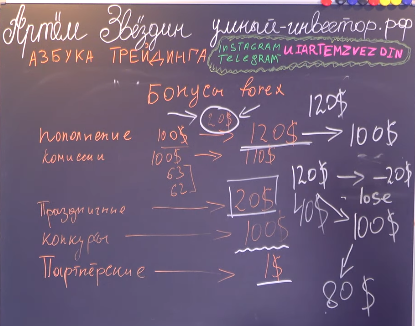 Артём Звёздин умный-инвестор.рф
АЗБУКА ТРЕЙДИНГА INSTAGRAM TELEGRAM UIARTEMZVEZDIN
Бонусы forex
20$
120$
Пополнение 100$ 120$ 100$
Комиссии 100$ 110$
63
62
120$ -20$
lose
Праздничные 20$ 40$ 100$
Конкурсы 100$
Партнёрские 1$
80$